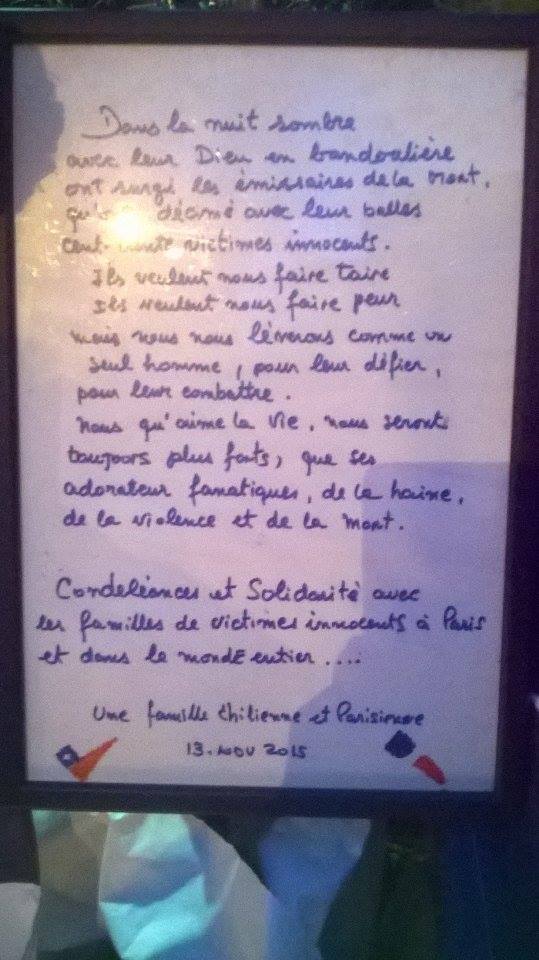 Dans la nuit sombre
avec leur Dieu en bandoulière
ont surgi les émissaires de la Mort,
décimé avec leur balles
victimes innocents.
Ils veulent nous faire taire
Ils veulent nous faire peur
mais nous nous lèverons comme un
seul homme, pour leur défier,
pour leur combattre.
Nous qu'aime la Vie, nous seront
toujours plus forts, que ses
adorateur fanatiques, de la haine,
de la violence et de la mort.
Condeléances et Solidarité avec
les familles de victimes innocents à Paris
et dans le mondE entier ....
Une famille Chilienne et Parisienne
13. NOV 2015